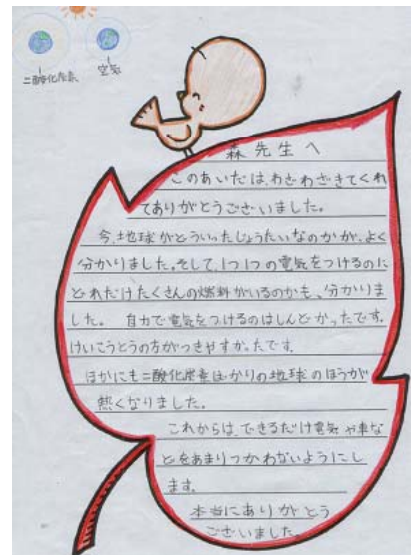 二酸化炭素
空気
森先生へ
このあいだは、わざわざきてくれ
てありがとうございました。
今、地球がどういったじょうたいなのかが、よく
分かりました。そして、1つ1つの電気をつけるのに
どれだけたくさんの燃料がいるのかも、分かりま
した。 自力で電気をつけるのはしんどかったです。
けいこうとうの方がつきやすかったです。
ほかにも二酸化炭素ばかりの地球のほうが
熱くなりました。
これからは、できるだけ電気や車な
どをあまりつかわないようにし
ます。
本当にありがとう
ございました。